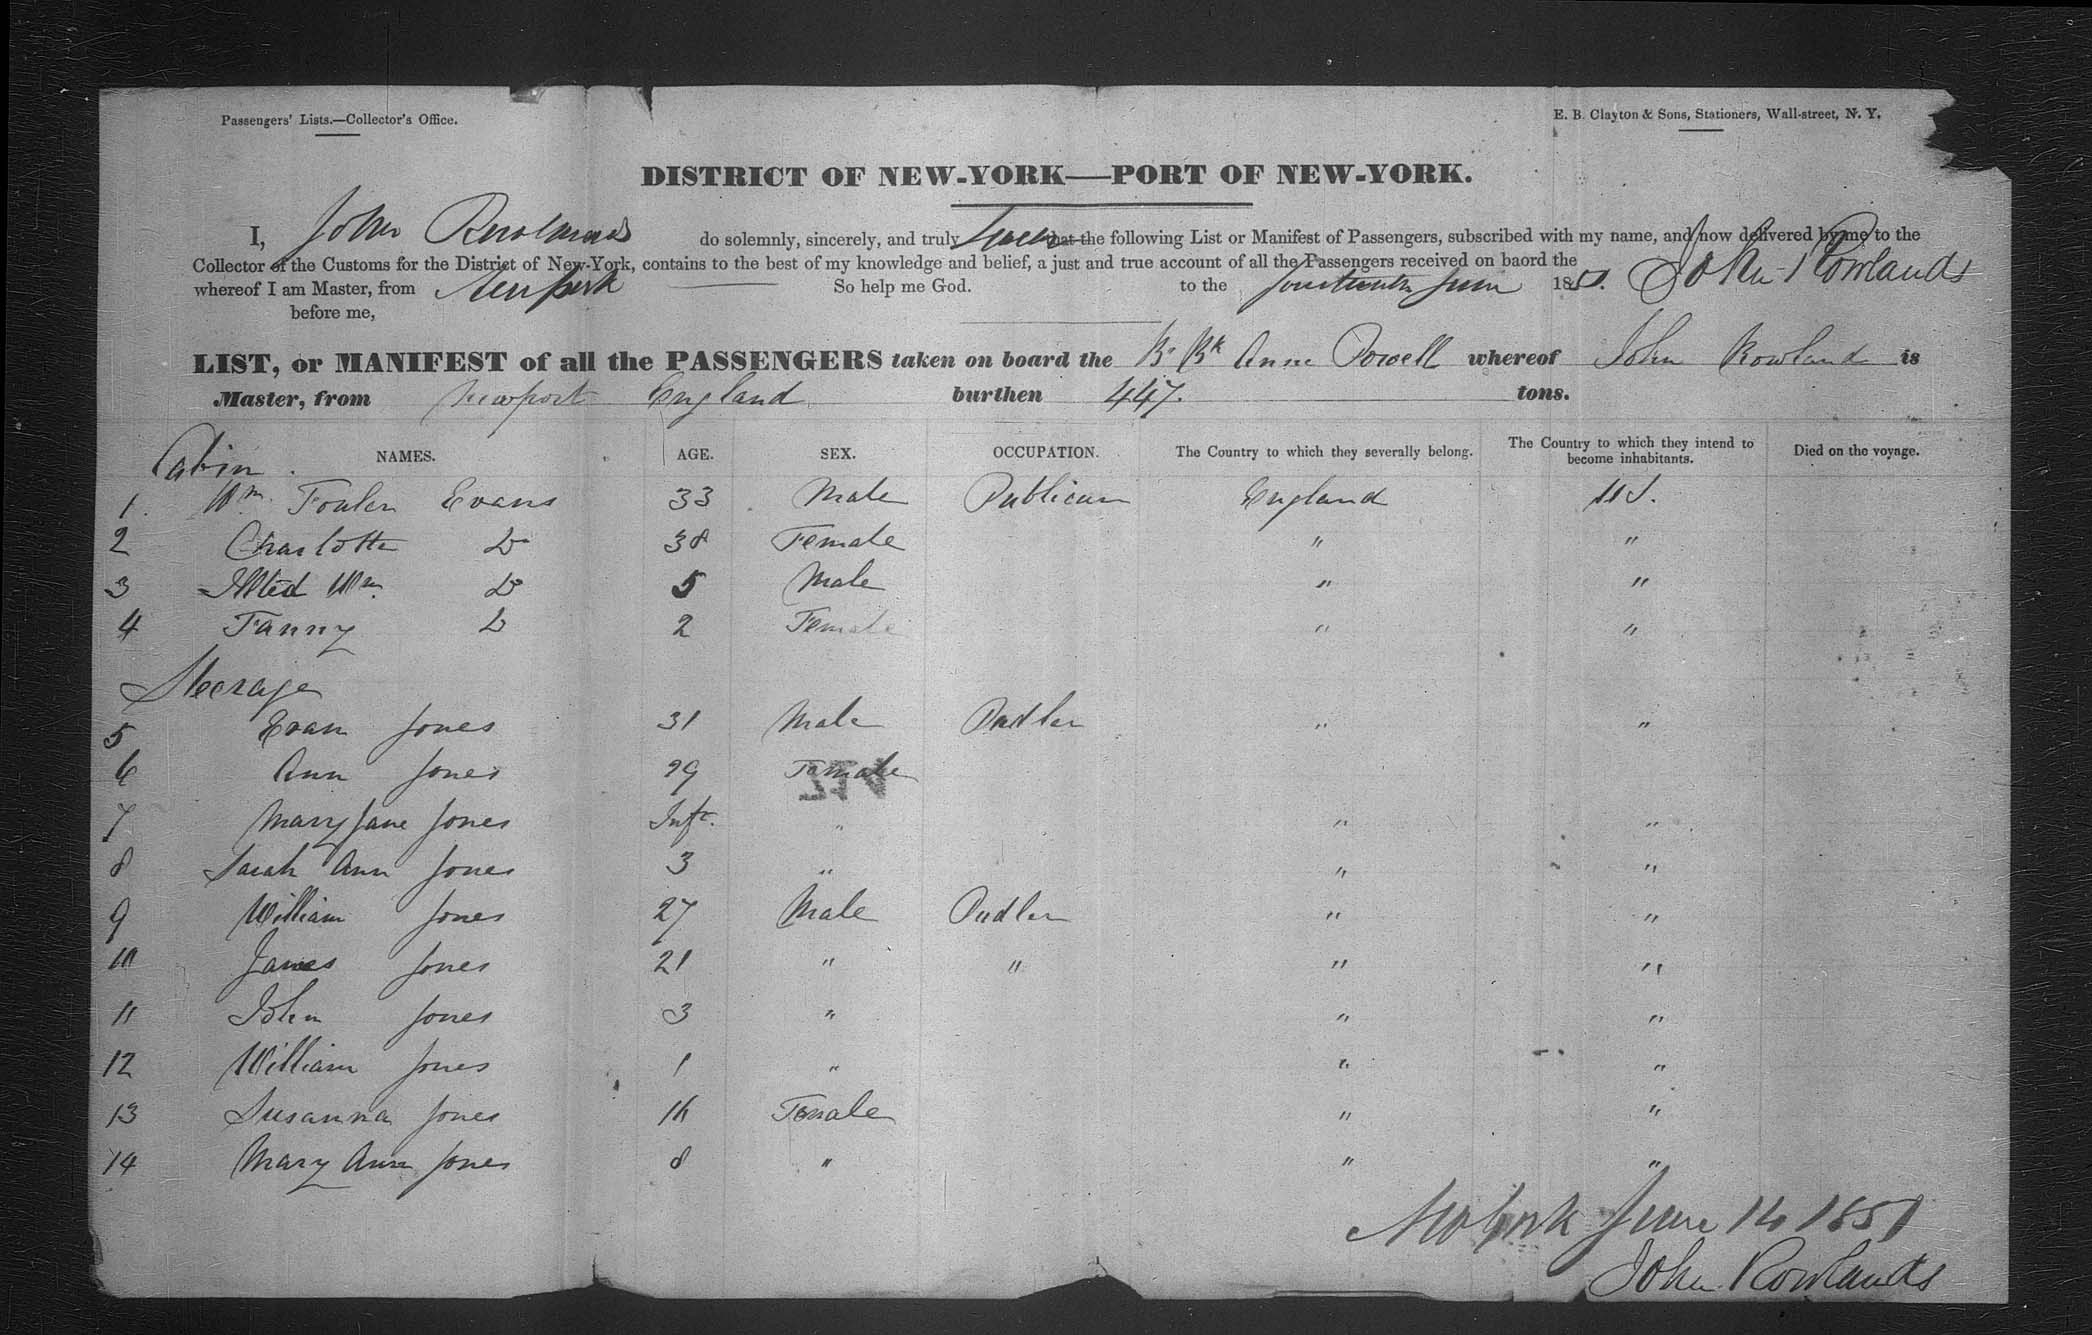 Passengers' Lists.—Collector's Office.
E. B. Clayton & Sons, Stationers, Wall-street, N. Y.
DISTRICT OF NEW-YORK—PORT OF NEW-YORK.
I, John Rowlands do solemnly, sincerely, and truly Swear that the following List or Manifest of Passengers, subscribed with my name, and now delivered by me to the
Collector of the Customs for the District of New-York, contains to the best of my knowledge and belief, a just and true account of all the Passengers received on baord the
whereof I am Master, from So help me God. to the fourteenth June 1851. John Rowlands
before me,
LIST, or MANIFEST of all the PASSENGERS taken on board the Br Bk Anne Powell whereof John Rowland is
Master, from Newport England burthen 447. tons.
NAMES. AGE. SEX. OCCUPATION. The Country to which they severally belong. The Country to which they intend to become inhabitants. Died on the voyage.
Cabin.
1. Wm. Fouler Evans 33 Male Publican England U S.
2 Charlotte Do 38 Female " "
3 Alfed Wm. Do 5 Male " "
4 Fanny Do 2 Female " "
Steerage
5 Evan Jones 31 Male Pudler " "
6 Ann Jones 29 Female
7 Mary Jane Jones Inft. " " "
8 Sarah Ann Jones 3 " " "
9 William Jones 27 Male Pudler " "
10 James Jones 21 " " " "
11 John Jones 3 " " "
12 William Jones 1 " " "
13 Susanna Jones 16 Female " "
14 Mary Ann Jones 8 " " "
New York June 14 1851
John Rowlands